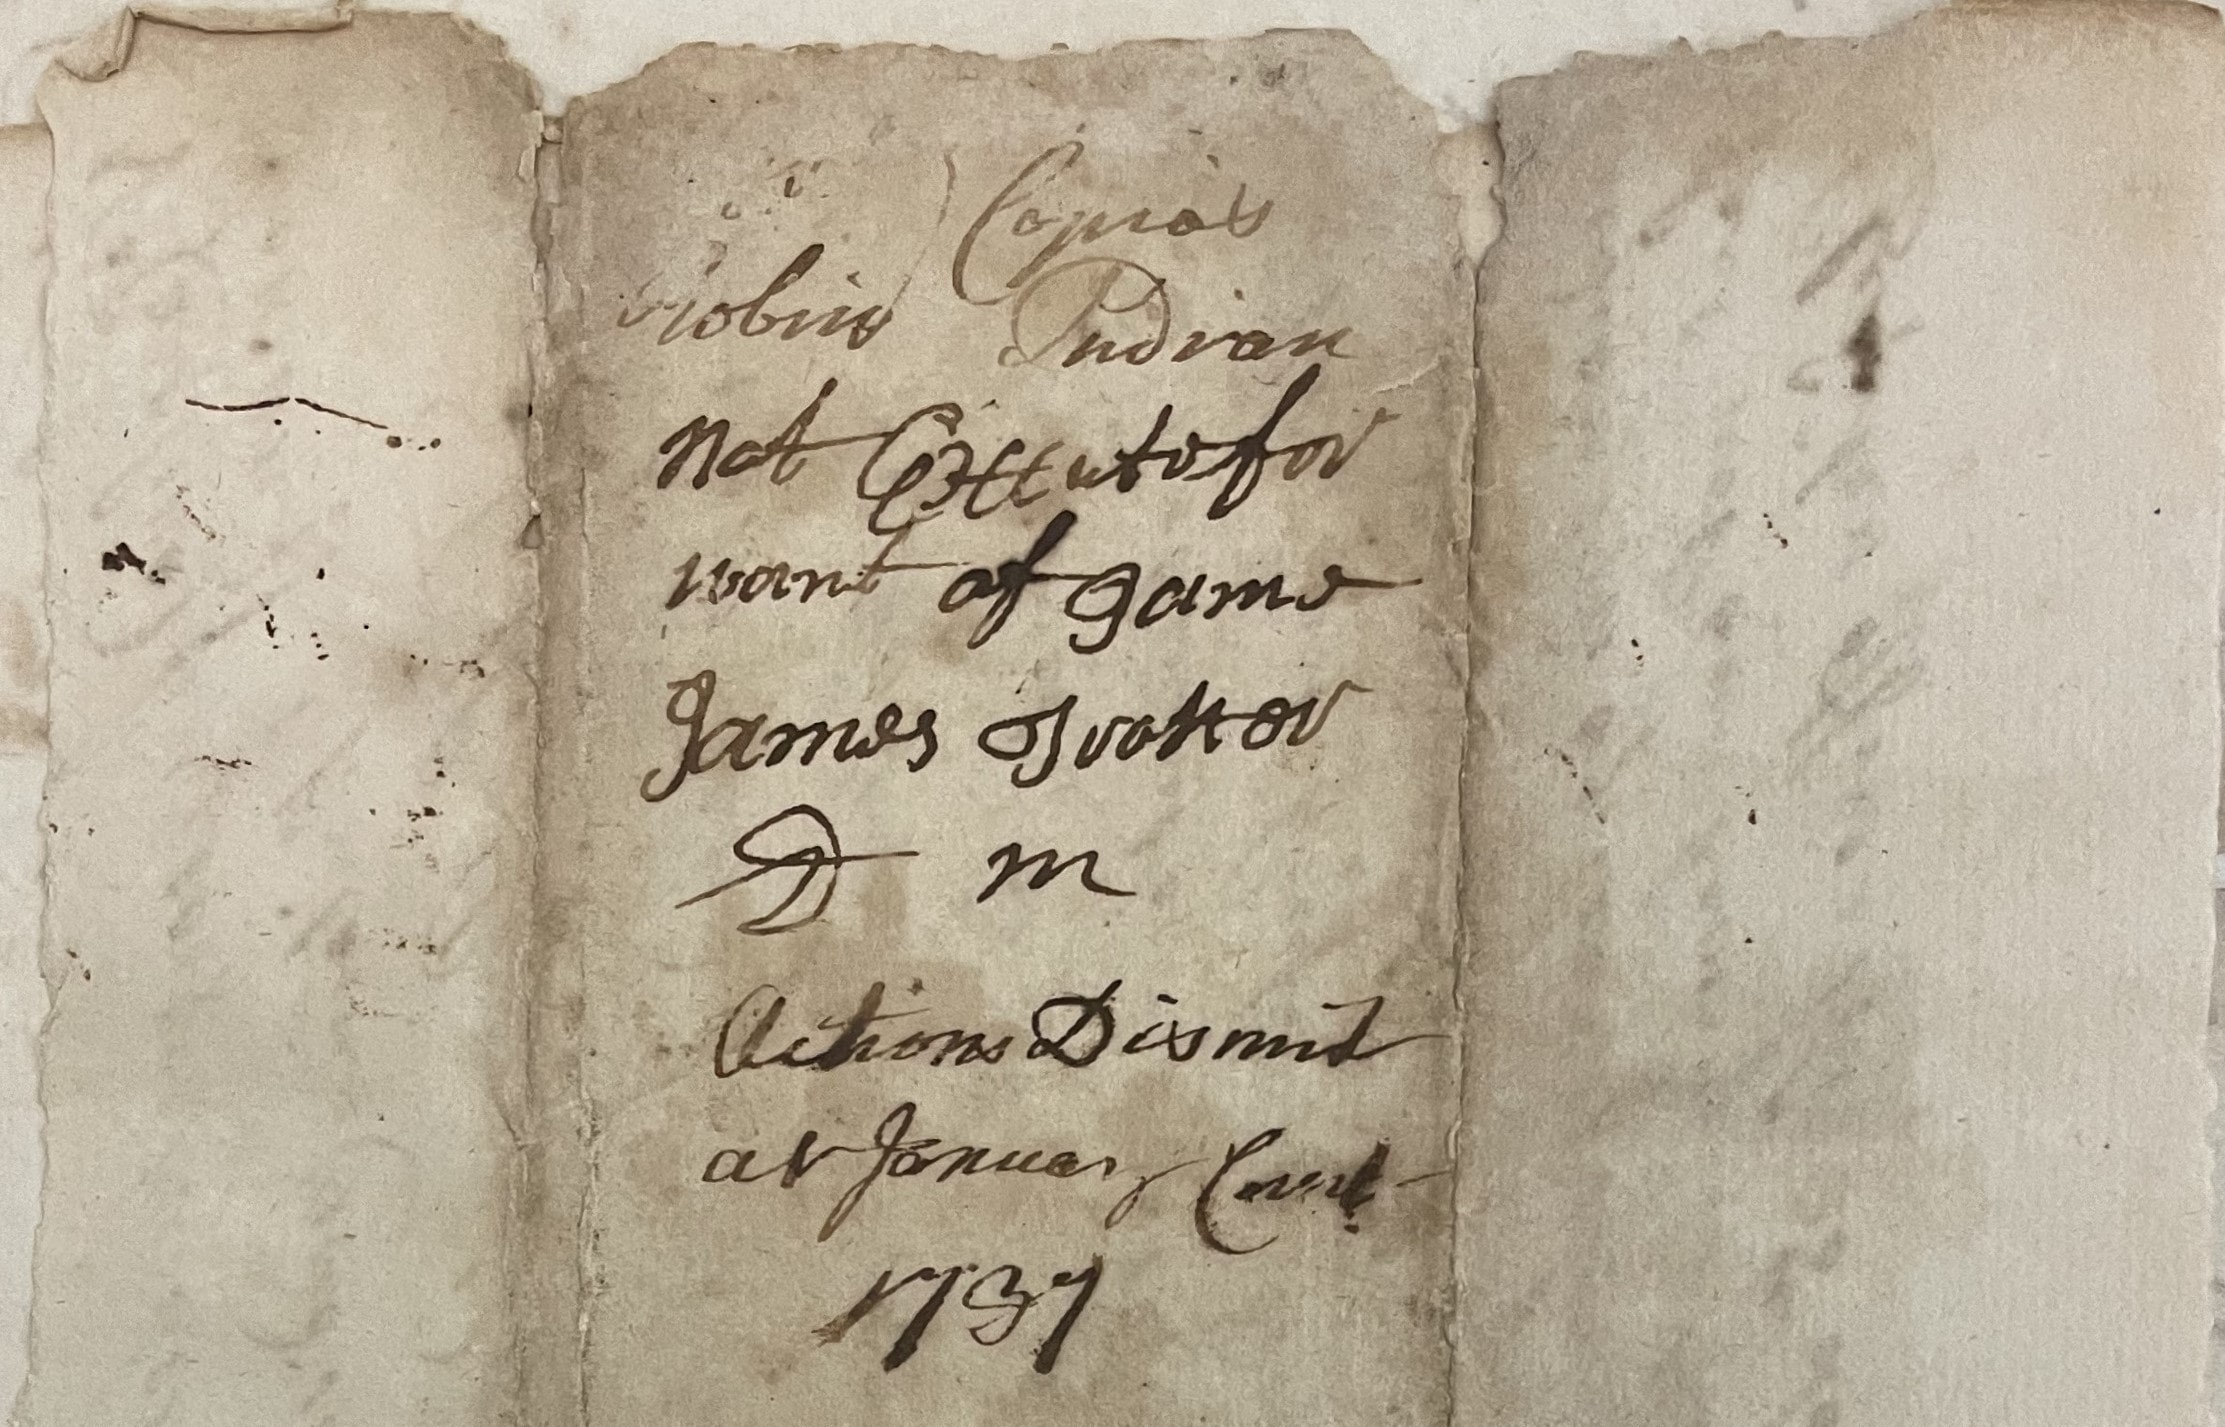 Capias
Robin Indian
Not Exccute for
want of game
James Trotter
D m
Actions Dismit
at January Court
1737